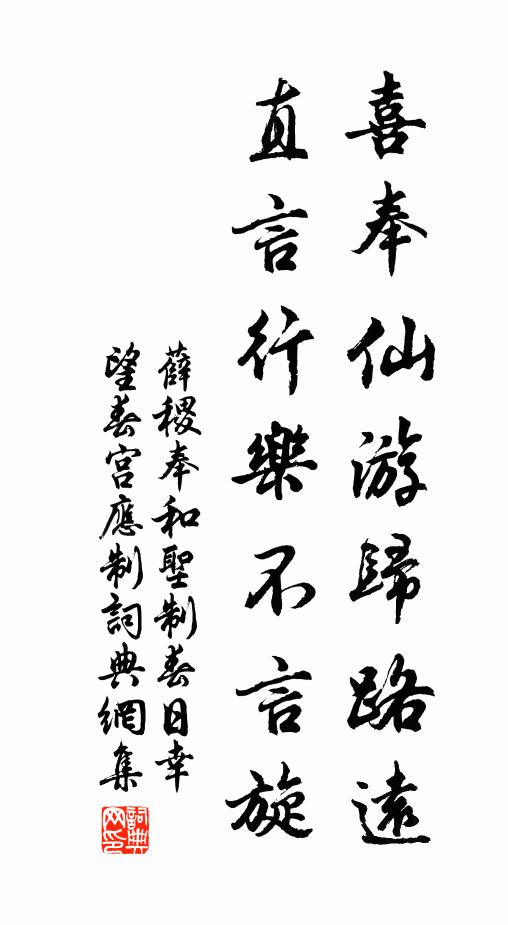 喜奉仙游歸路遠
直言行樂不言旋
薛稷奉和聖制春日幸
望春宮應制詞典網集
詞典
网印